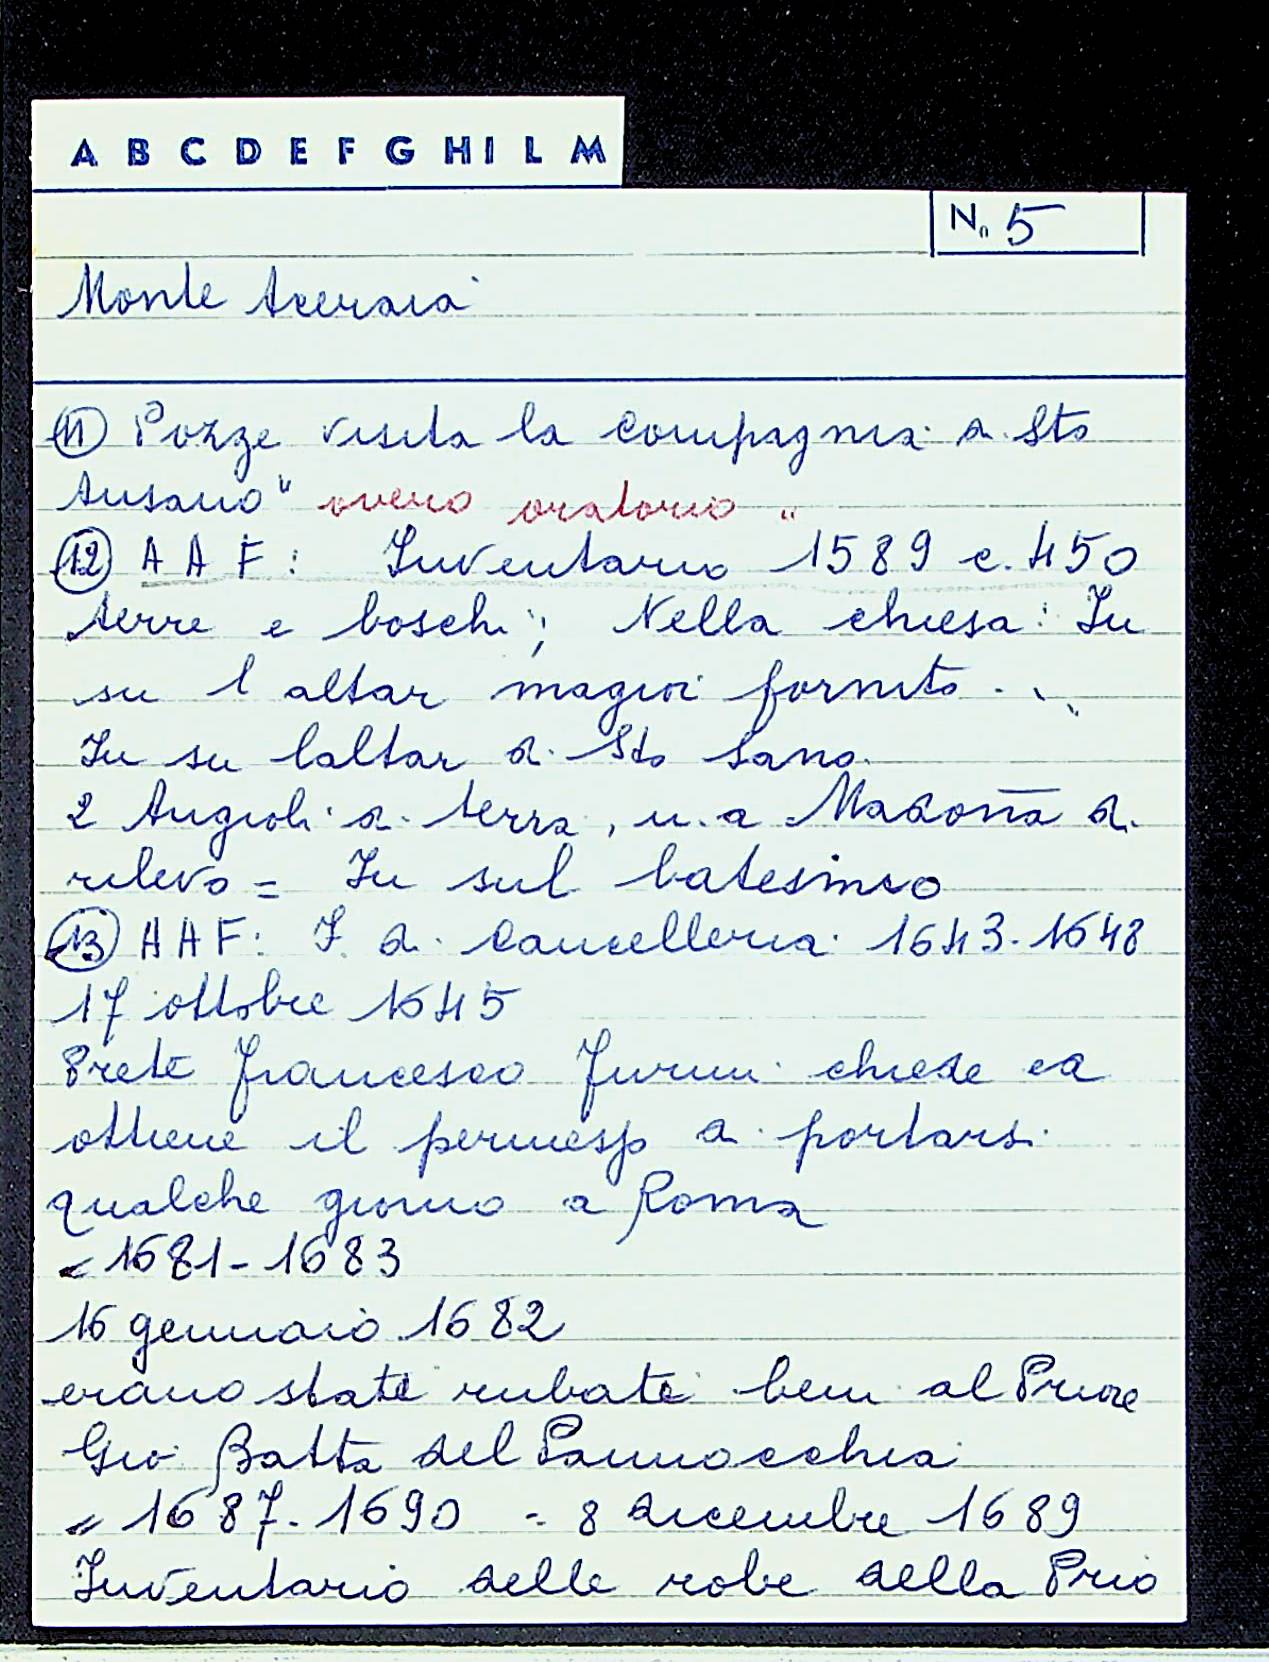 A B C D E F G H I L M
N. 5
Monte Aceraia
11 Pozze visita la compagnia di Sto
Ansano" overo oratorio "
12 A A F: Inventario 1589 c. 450
terre e boschi; Nella chiesa: In
su l altar magior fornito . . .
In su laltar di Sto Sano.
2 Angioli di terra, u.a Madona di
rilevo = In sul batesimo
13 A A F: I. di Cancelleria 1643-1648
17 ottobre 1645
Prete Francesco Furini chiede ed
ottiene il permesso di portarsi
qualche giorno a Roma
= 1681-1683
16 gennaio 1682
erano state rubate beni al Priore
Gio Batta del Pannocchia
= 1687-1690 - 8 dicembre 1689
Inventario delle robe della Prio